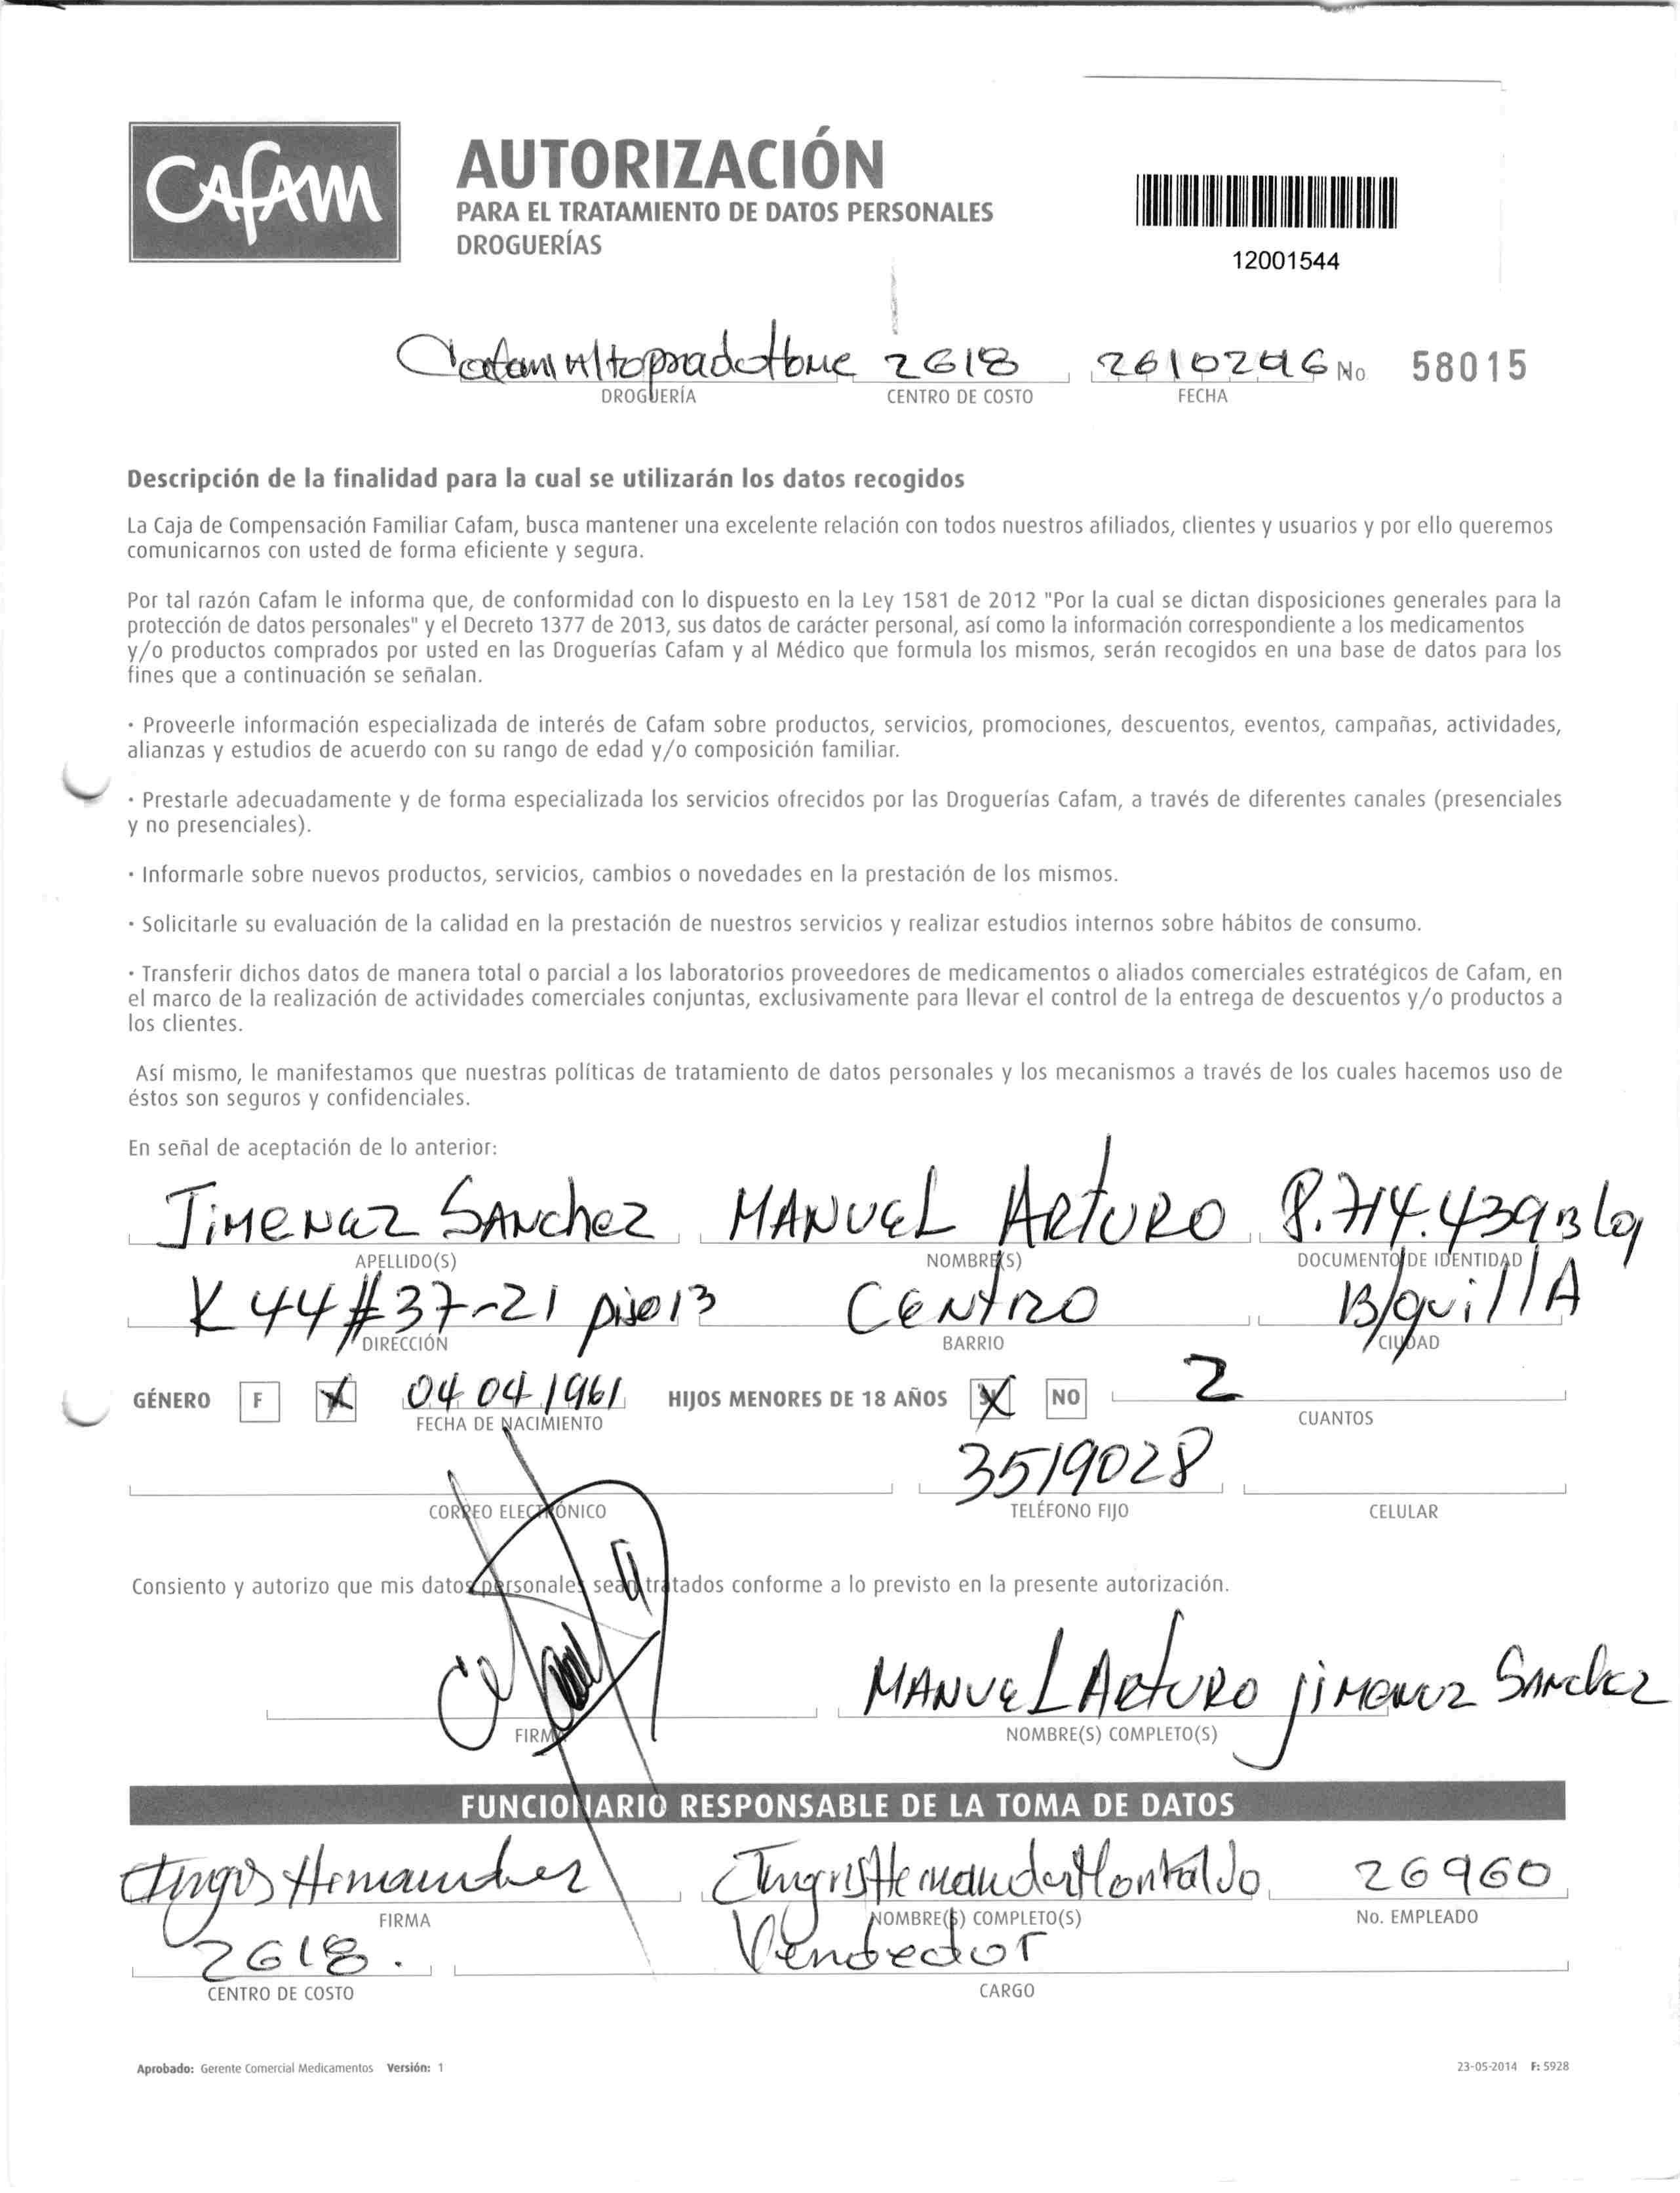 CAFAM
AUTORIZACIÓN
PARA EL TRATAMIENTO DE DATOS PERSONALES
DROGUERÍAS
12001544
2618 No 58015
DROGUERÍA CENTRO DE COSTO FECHA
Descripción de la finalidad para la cual se utilizarán los datos recogidos
La Caja de Compensación Familiar Cafam, busca mantener una excelente relación con todos nuestros afiliados, clientes y usuarios y por ello queremos
comunicarnos con usted de forma eficiente y segura.
Por tal razón Cafam le informa que, de conformidad con lo dispuesto en la Ley 1581 de 2012 "Por la cual se dictan disposiciones generales para la
protección de datos personales" y el Decreto 1377 de 2013, sus datos de carácter personal, así como la información correspondiente a los medicamentos
y/o productos comprados por usted en las Droguerías Cafam y al Médico que formula los mismos, serán recogidos en una base de datos para los
fines que a continuación se señalan.
· Proveerle información especializada de interés de Cafam sobre productos, servicios, promociones, descuentos, eventos, campañas, actividades,
alianzas y estudios de acuerdo con su rango de edad y/o composición familiar.
· Prestarle adecuadamente y de forma especializada los servicios ofrecidos por las Droguerías Cafam, a través de diferentes canales (presenciales
y no presenciales).
· Informarle sobre nuevos productos, servicios, cambios o novedades en la prestación de los mismos.
· Solicitarle su evaluación de la calidad en la prestación de nuestros servicios y realizar estudios internos sobre hábitos de consumo.
· Transferir dichos datos de manera total o parcial a los laboratorios proveedores de medicamentos o aliados comerciales estratégicos de Cafam, en
el marco de la realización de actividades comerciales conjuntas, exclusivamente para llevar el control de la entrega de descuentos y/o productos a
los clientes.
Así mismo, le manifestamos que nuestras políticas de tratamiento de datos personales y los mecanismos a través de los cuales hacemos uso de
éstos son seguros y confidenciales.
En señal de aceptación de lo anterior:
Jimenez Sanchez MANUEL ARTURO 8.714.439 B/q
APELLIDO(S) NOMBRE(S) DOCUMENTO DE IDENTIDAD
K 44 # 37-21 piso 13 Centro B/quillA
DIRECCIÓN BARRIO CIUDAD
GÉNERO F X 04 04 1961 HIJOS MENORES DE 18 AÑOS X NO 2
FECHA DE NACIMIENTO CUANTOS
3519028
CORREO ELECTRÓNICO TELÉFONO FIJO CELULAR
Consiento y autorizo que mis datos personales sean tratados conforme a lo previsto en la presente autorización.
MANUEL ARTURO jimenez Sanchez
FIRMA NOMBRE(S) COMPLETO(S)
FUNCIONARIO RESPONSABLE DE LA TOMA DE DATOS
26960
FIRMA NOMBRE(S) COMPLETO(S) No. EMPLEADO
2618. Vendedor
CENTRO DE COSTO CARGO
Aprobado: Gerente Comercial Medicamentos Versión: 1 23-05-2014 F: 5928